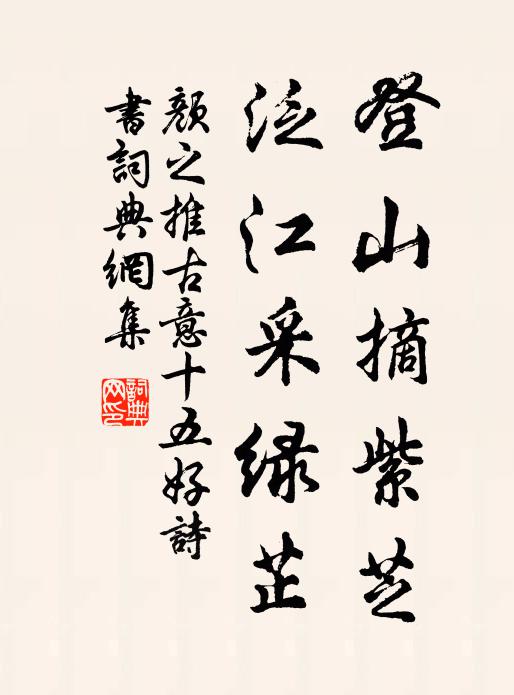 登山摘紫芝
泛江采绿芷
顏之推古意十五好詩
書詞典網集
詞典网印